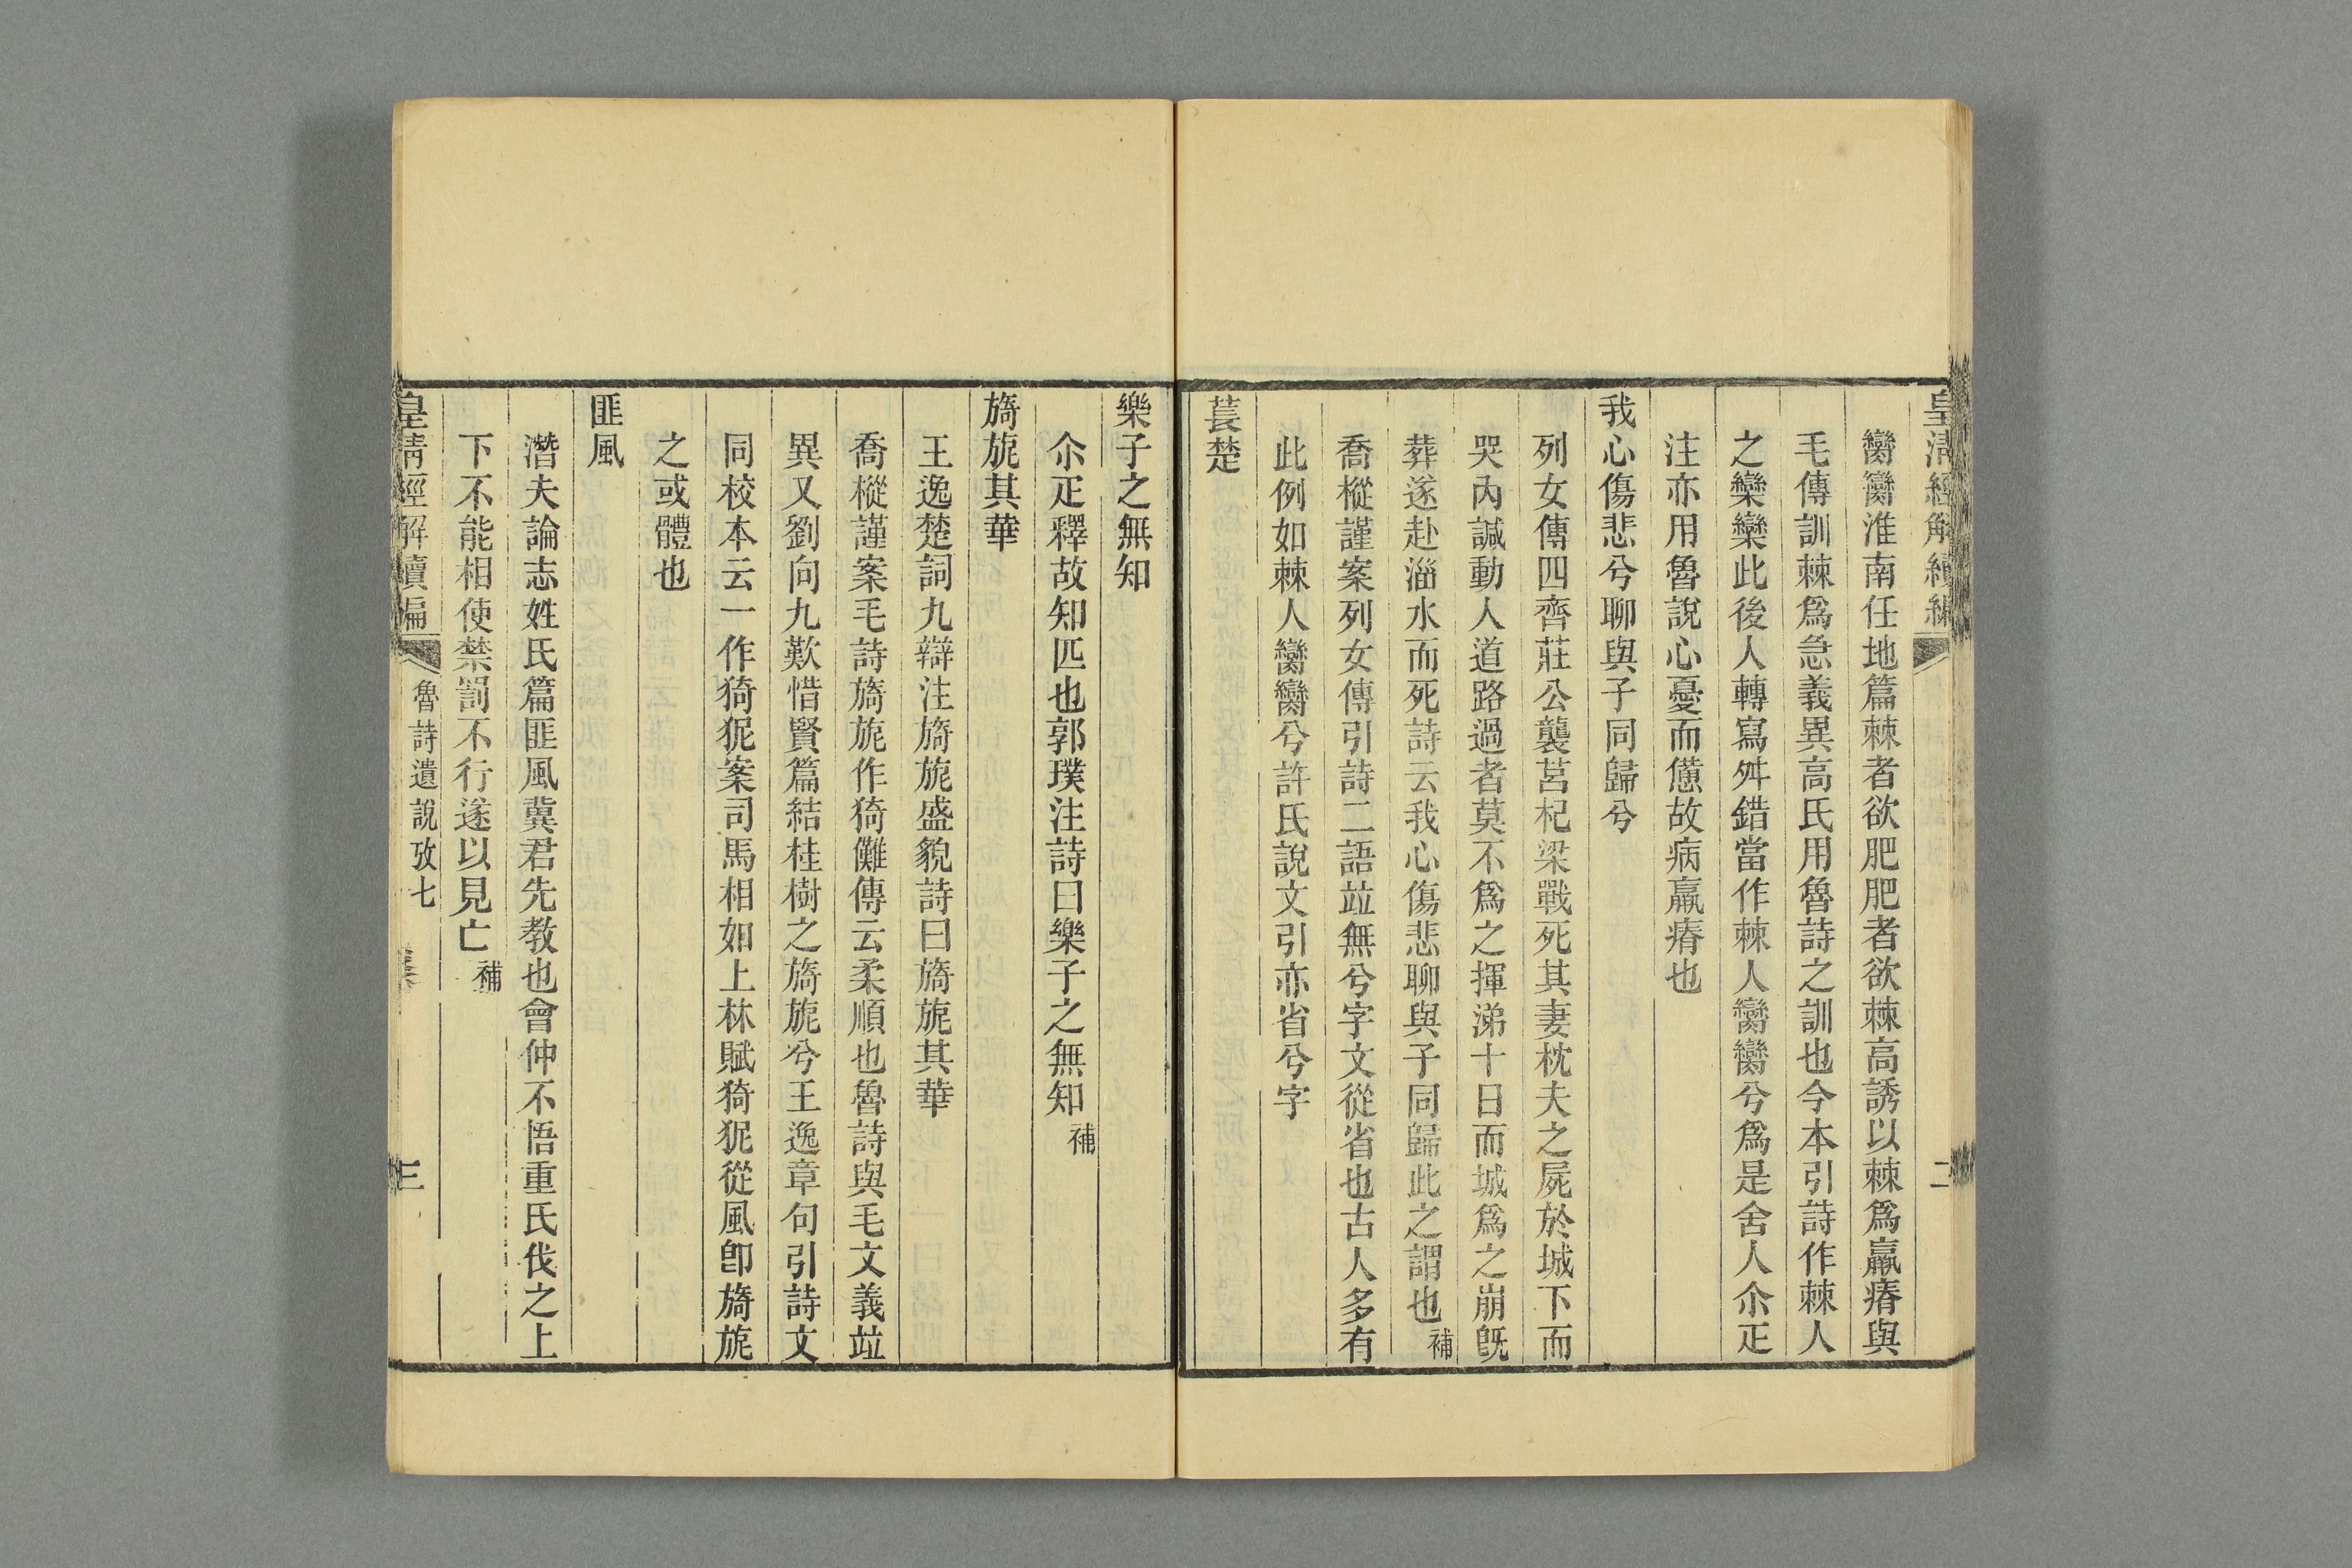 皇清經解續編
二
臠臠淮南任地篇棘者欲肥肥者欲棘高誘以棘爲羸瘠與
毛傳訓棘爲急義異高氏用魯詩之訓也今本引詩作棘人
之欒欒此後人轉寫舛錯當作棘人臠臠兮爲是舍人尒疋
注亦用魯說心憂而憊故病羸瘠也
我心傷悲兮聊與子同歸兮
列女傳四齊莊公襲莒杞梁戰死其妻枕夫之屍於城下而
哭內諴動人道路過者莫不爲之揮涕十日而城爲之崩旣
葬遂赴淄水而死詩云我心傷悲聊與子同歸此之謂也補
喬樅謹案列女傳引詩二語竝無兮字文從省也古人多有
此例如棘人臠臠兮許氏說文引亦省兮字
萇楚
樂子之無知
尒疋釋故知匹也郭璞注詩曰樂子之無知補
旖旎其華
王逸楚詞九辯注旖旎盛貌詩曰旖旎其華
喬樅謹案毛詩旖旎作猗儺傳云柔順也魯詩與毛文義竝
異又劉向九歎惜賢篇結桂樹之旖旎兮王逸章句引詩文
同校本云一作猗狔案司馬相如上林賦猗狔從風卽旖旎
之或體也
匪風
潛夫論志姓氏篇匪風冀君先教也會仲不悟重氏伐之上
下不能相使禁罰不行遂以見亡補
皇清經解續編
魯詩遺說攷七
三